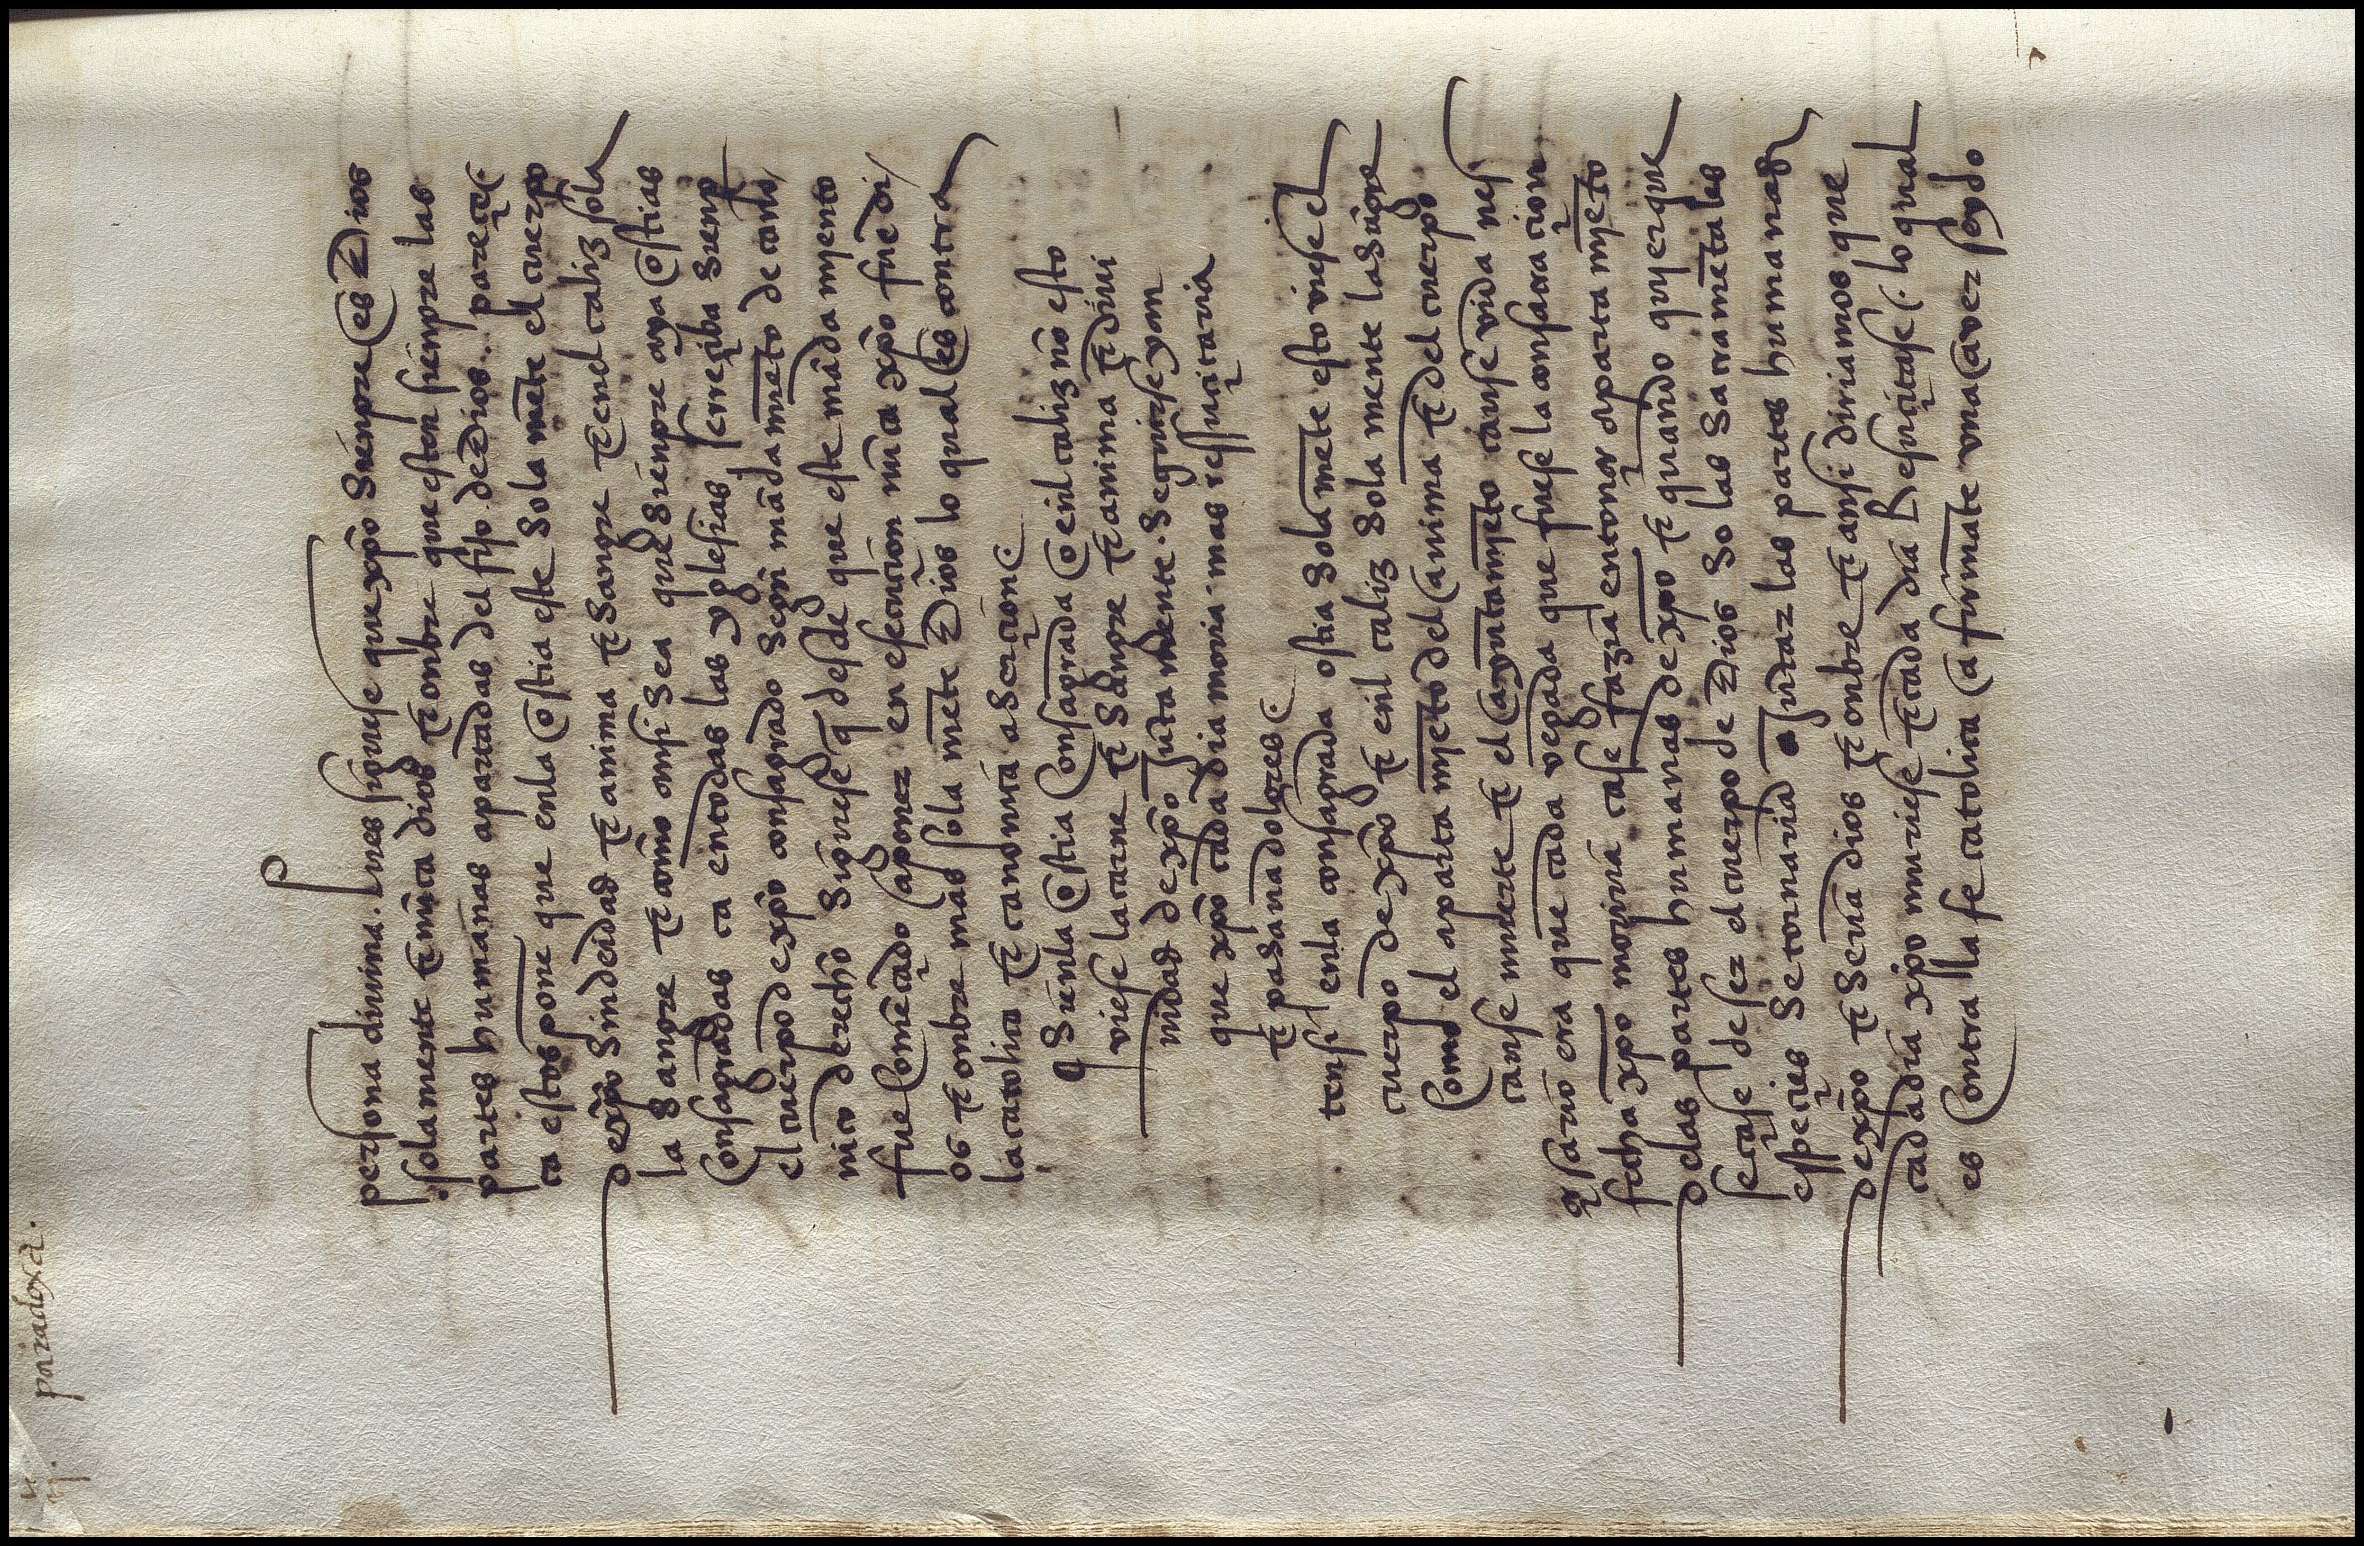 paradoxa.
persona diuina. Pues siguese que xp̄o sienpre es Dios
solamente τ nūca dios τ onbre que esten sienpre las
partes humanas apartadas del fijo de Dios. pareçe.
ca estos pone que enla ostia este sola mēte el cuerpo
de xp̄o sin deidad τ anima τ sangre τ enel caliz sola
la sangre τ como ansi sea que sienpre aya ostias
Consagradas ca en todas las yglesias se rreçiba sienp̄
el cuerpo de xp̄o consagrado segū mādamiēto de cano
nico derecho siguese q̄ desde que este mādamyento
fue Comēçado a poner en esecuçion nūca xp̄o fue di
os τ onbre mas sola mēte Dios lo qual es contra
la catolica τ canonica aserçion.
q̄ si enla ostia Consagrada o enl caliz nō esto
viese la carne τ sangre τ anima τ diui
nidad de xp̄o Junta mente. seguirseyan
que xp̄o cada dia moria mas ressuçitaria
τ pasana dolores.
ten si enla consagrada ostia sola mēte estoviese el
cuerpo de xp̄o τ enl caliz sola mente la sāgre
Como el aparta myēto del anima τ del cuerpo
canse muerte τ el ayuntamyēto canse vida neçe
çesario era que cada vegada que fuese la consacraçion
fecha xp̄o moriria ca se fazia entonçe apartamyēto
delas partes humanas de xp̄o τ quando quyer que
seçase de sez el cuerpo de Dios so las sacramētales
espeçies se tornaria a Juntaz las partes humanas
de xp̄o τ seria dios τ onbre τ ansi diriamos que
cada dia xp̄o muriese τ cada dia Resuçitase. lo qual
es Contra lla fe catolica ca firmāte vna vez seydo